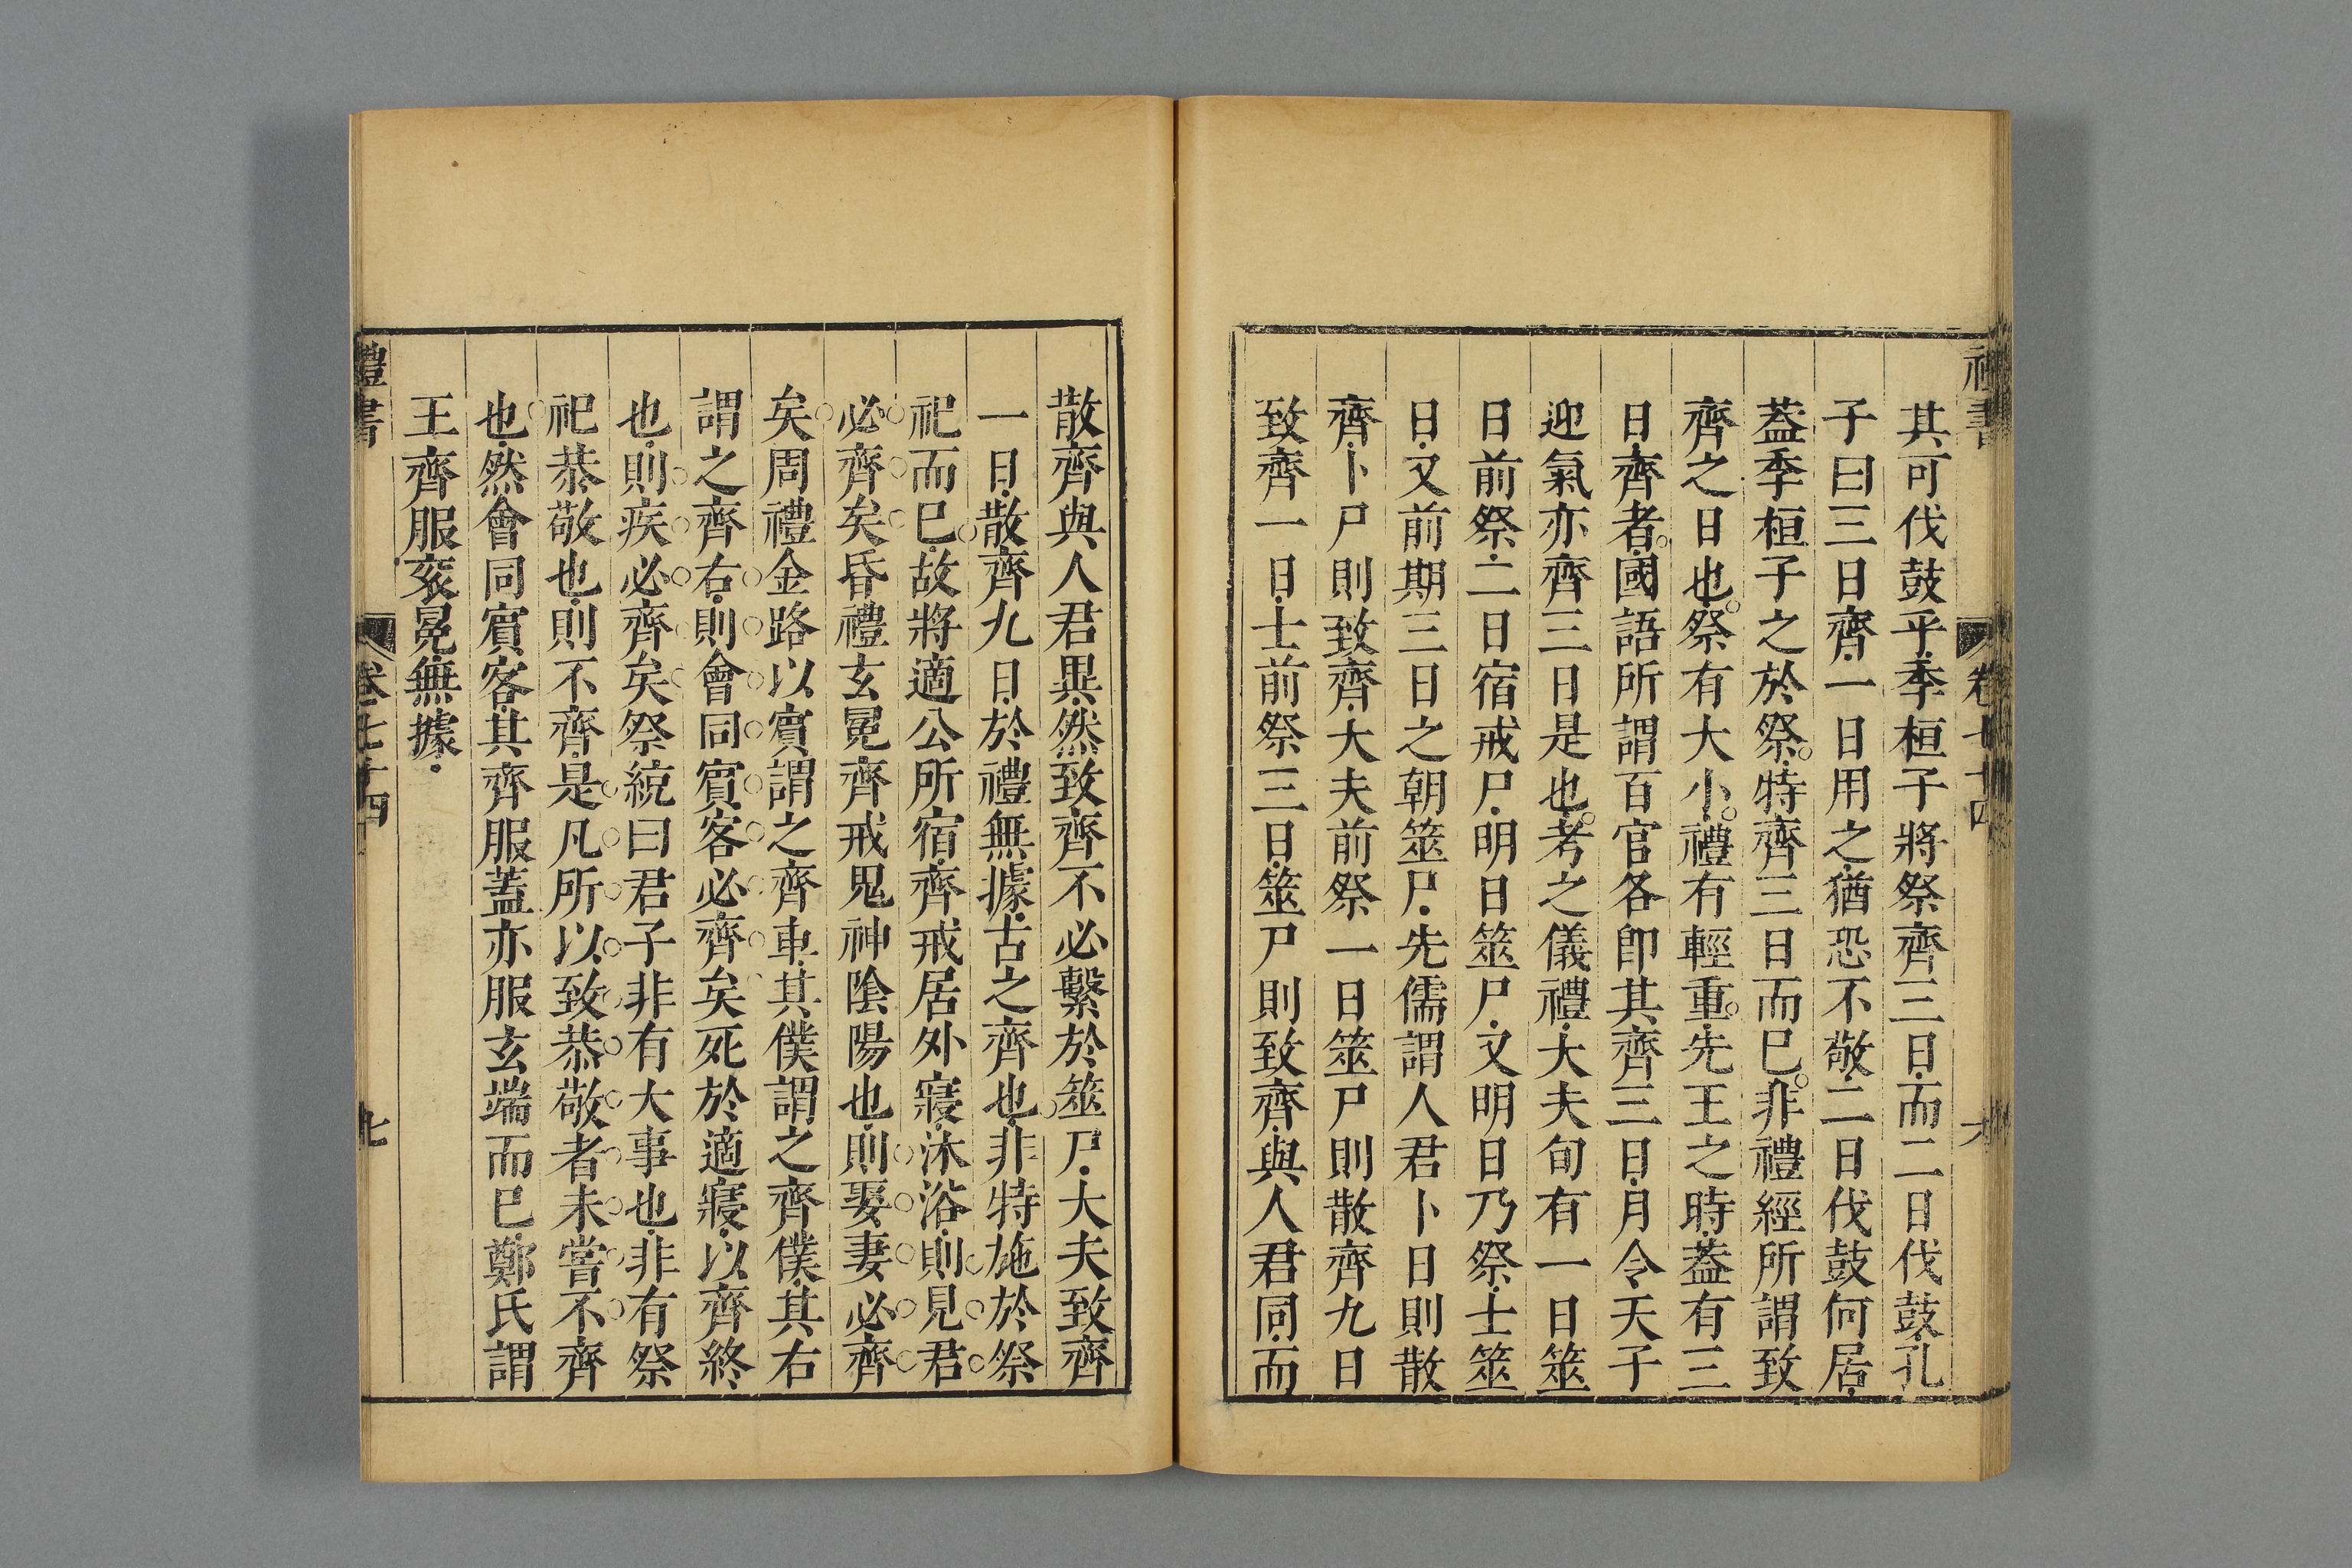 其可伐鼓乎季桓子將祭齊三日而二日伐鼓孔
子曰三日齊一日用之猶恐不敬二日伐鼓何居
葢季桓子之於祭特齊三日而巳非禮經所謂致
齊之日也祭有大小禮有輕重先王之時葢有三
日齊者國語所謂百官各卽其齊三日月令天子
迎氣亦齊三日是也考之儀禮大夫旬有一日筮
日前祭二日宿戒尸明日筮尸又明日乃祭士筮
日又前期三日之朝筮尸先儒謂人君卜日則散
齊卜尸則致齊大夫前祭一日筮尸則散齊九日
致齊一日士前祭三日筮尸則致齊與人君同而
散齊與人君異然致齊不必繫於筮尸大夫致齊
一日散齊九日於禮無據古之齊也非特施於祭
祀而巳故將適公所宿齊戒居外寢沐浴則見君
必齊矣昏禮玄冕齊戒鬼神陰陽也則娶妻必齊
矣周禮金路以賓謂之齊車其僕謂之齊僕其右
謂之齊右則會同賓客必齊矣死於適寢以齊終
也則疾必齊矣祭統曰君子非有大事也非有祭
祀恭敬也則不齊是凡所以致恭敬者未嘗不齊
也然會同賓客其齊服蓋亦服玄端而巳鄭氏謂
王齊服衮冕無據
禮書
卷七十四
七